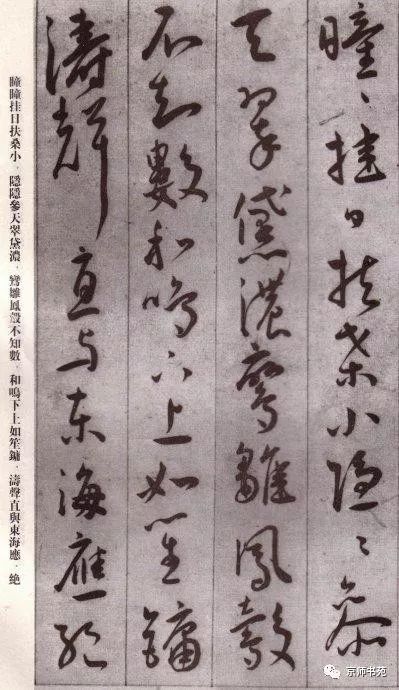 瞳〻挂日扶桑小隱〻參
天翠黛濃鸞雛鳳鷇
不知數和鳴下上如笙鏞
濤聲直与東海應絶
瞳瞳挂日扶桑小．隱隱參天翠黛濃．鸞雛鳳鷇不知數．和鳴下上如笙鏞．濤聲直與東海應．绝
宗师书苑